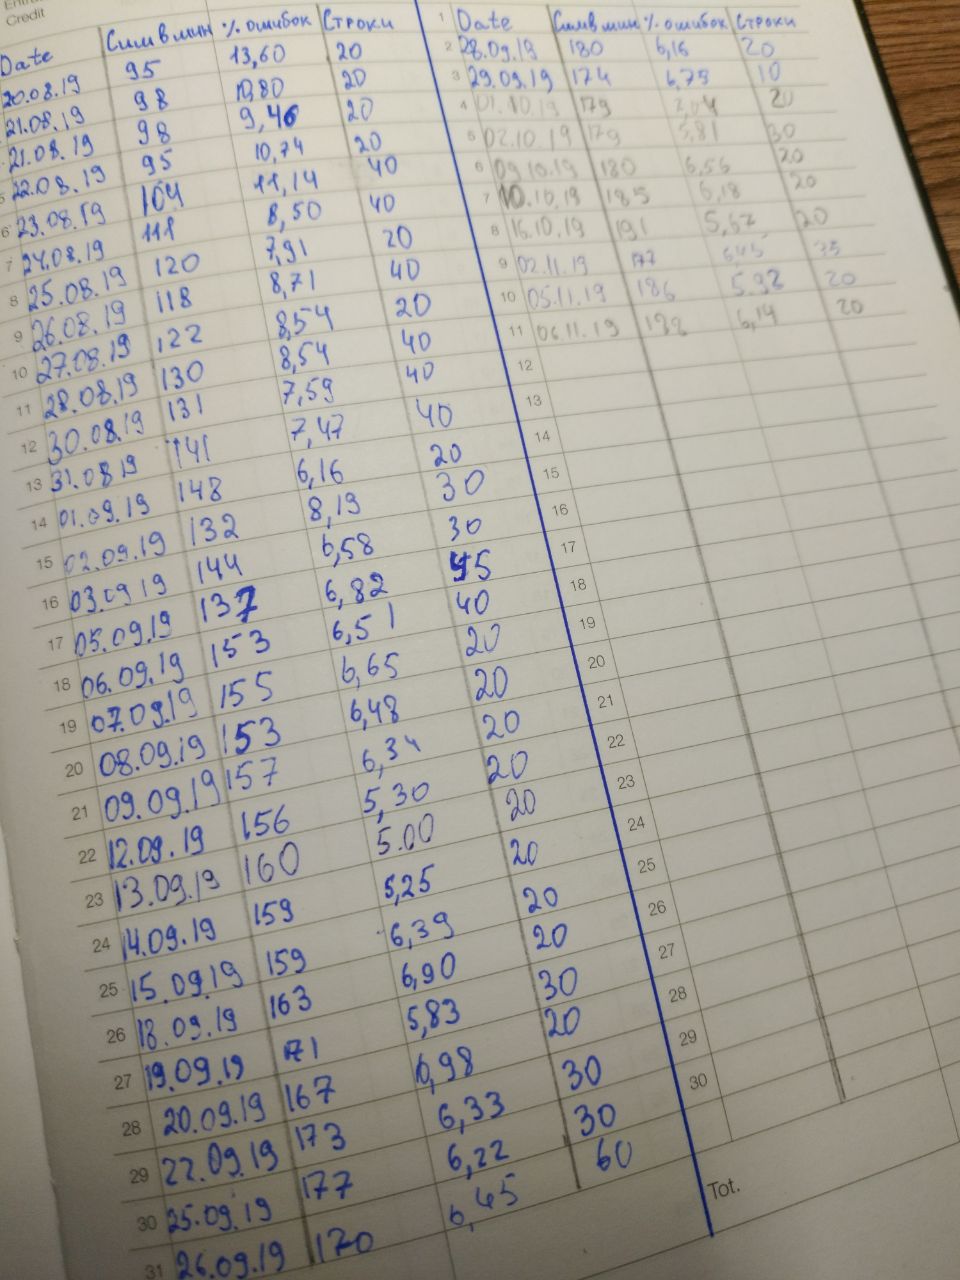 Credit
Date Симв мин % ошибок Строки
20.08.19 95 13,60 20
21.08.19 98 10,80 20
21.08.19 98 9,46 20
5 22.08.19 95 10,74 20
6 23.08.19 104 11,14 40
7 24.08.19 111 8,50 40
8 25.08.19 120 7,91 20
9 26.08.19 118 8,71 40
10 27.08.19 122 8,54 20
11 28.08.19 130 8,54 40
12 30.08.19 131 7,59 40
13 31.08.19 141 7,47 40
14 01.09.19 148 6,16 20
15 02.09.19 132 8,19 30
16 03.09.19 144 6,58 30
17 05.09.19 137 6,82 45
18 06.09.19 153 6,51 40
19 07.09.19 155 6,65 20
20 08.09.19 153 6,48 20
21 09.09.19 157 6,34 20
22 12.09.19 156 5,30 20
23 13.09.19 160 5.00 20
24 14.09.19 159 5,25 20
25 15.09.19 159 6,39 20
26 18.09.19 163 6,90 20
27 19.09.19 171 5,83 30
28 20.09.19 167 6,98 20
29 22.09.19 173 6,33 30
30 25.09.19 177 6,22 30
31 26.09.19 170 6,45 60
1 Date Симв мин % ошибок Строки
2 28.09.19 180 6,16 20
3 29.09.19 174 6,75 10
4 01.10.19 179 20
5 02.10.19 179 5,81 30
6 09.10.19 180 6,56 20
7 10.10.19 185 6,18 20
8 16.10.19 191 5,62 20
9 02.11.19 177 6,45
10 05.11.19 186 5.92 20
11 06.11.19 6,14 20
12
13
14
15
16
17
18
19
20
21
22
23
24
25
26
27
28
29
30
Tot.